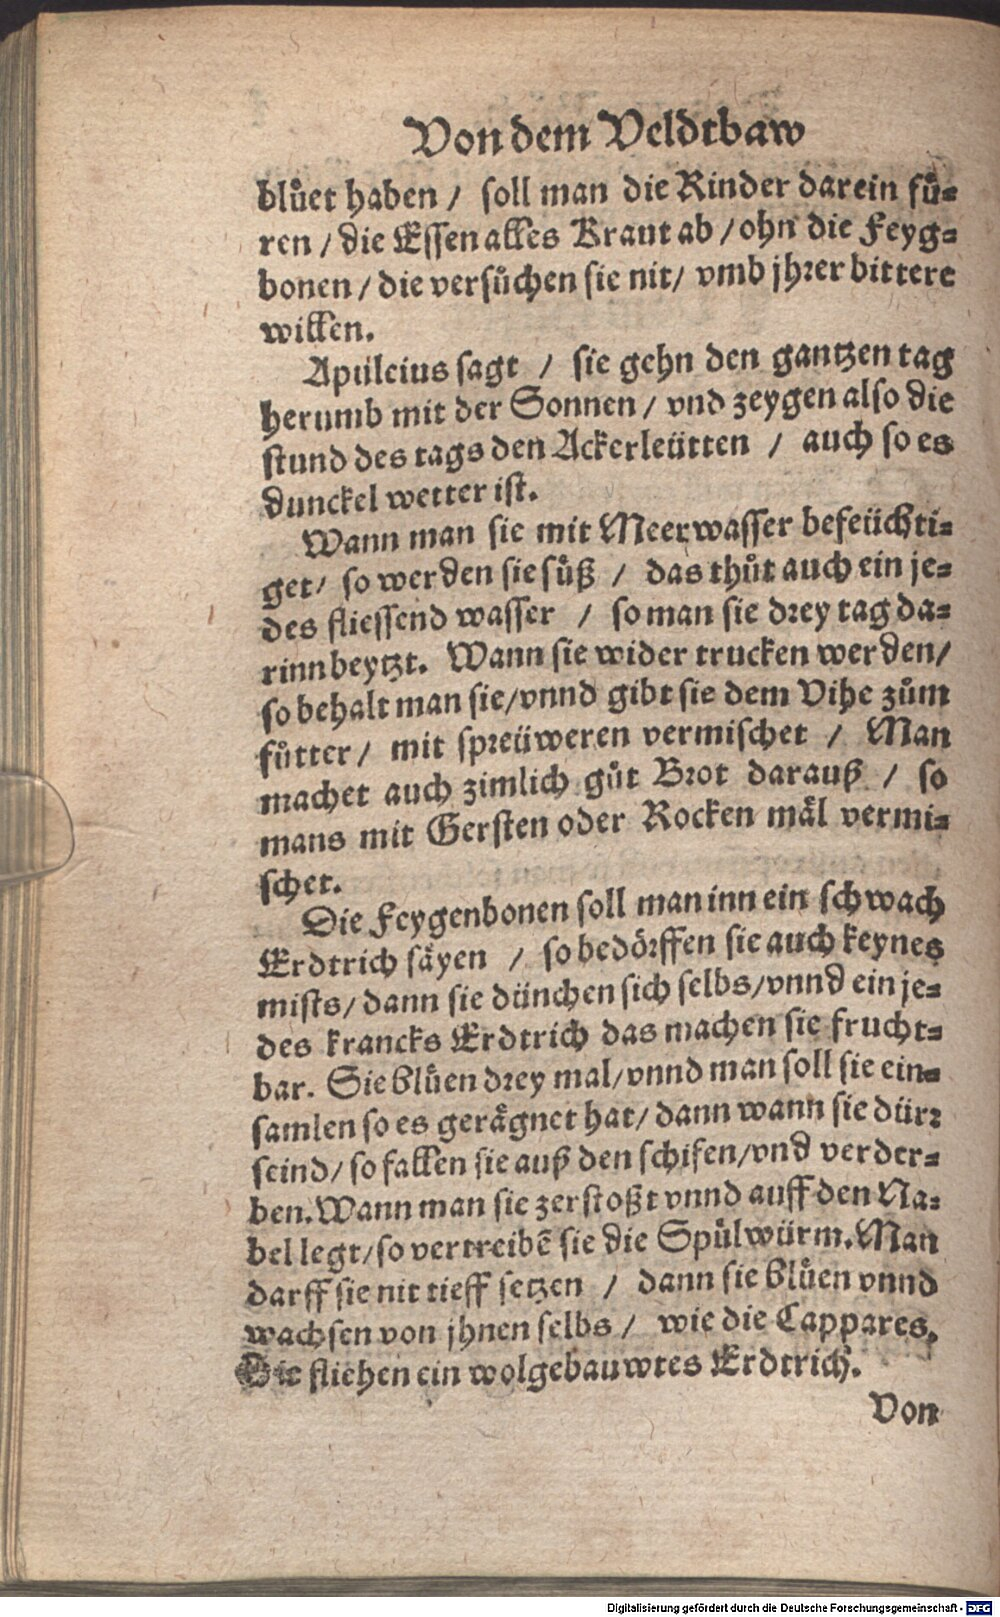 Von dem Veldtbaw
blůet haben / soll man die Rinder darein fů-
ren / die Essen alles Kraut ab / ohn die Feyg-
bonen / die versůchen sie nit / vmb jhrer bittere
willen.
Apuleius sagt / sie gehn den gantzen tag
herumb mit der Sonnen / vnd zeygen also die
stund des tags den Ackerleütten / auch so es
dunckel wetter ist.
Wann man sie mit Meerwasser befeüchti-
get / so werden sie sůß / das thůt auch ein je-
des fliessend wasser / so man sie drey tag da-
rinn beytzt. Wann sie wider trucken werden /
so behalt man sie / vnnd gibt sie dem Vihe zům
fůtter / mit spreüweren vermischet / Man
machet auch zimlich gůt Brot darauß / so
mans mit Gersten oder Rocken mål vermi-
schet.
Die Feygenbonen soll man inn ein schwach
Erdtrich såyen / so bedörffen sie auch keynes
mists / dann sie dünchen sich selbs / vnnd ein je-
des krancks Erdtrich das machen sie frucht-
bar. Sie blůen drey mal / vnnd man soll sie ein-
samlen so es gerågnet hat / dann wann sie dürr
seind / so fallen sie auß den schifen / vnd verder-
ben. Wann man sie zerstoßt vnnd auff den Na-
bel legt / so vertreibē sie die Spůlwürm. Man
darff sie nit tieff setzen / dann sie blůen vnnd
wachsen von jhnen selbs / wie die Cappares.
Sie fliehen ein wolgebauwtes Erdtrich.
Von
Digitalisierung gefördert durch die Deutsche Forschungsgemeinschaft - DFG